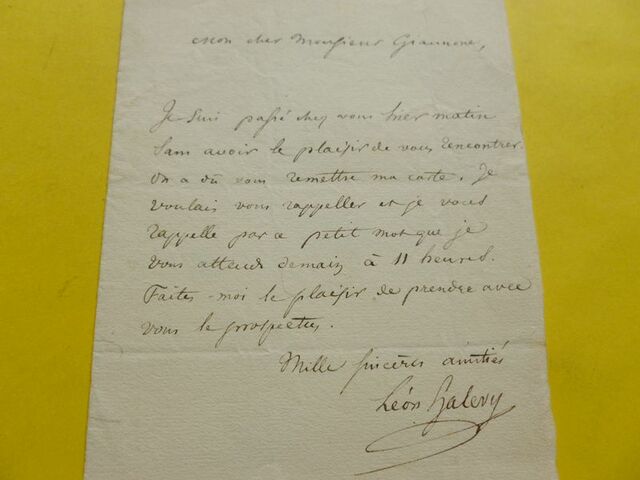 Mon cher Monsieur
Je suis passé chez vous hier matin
sans avoir le plaisir de vous rencontrer.
On a dû vous remettre ma carte. Je
voulais vous rappeller et je vous
rappelle par ce petit mot que je
vous attends demain à 11 heures.
Faites-moi le plaisir de prendre avec
vous le prospectus.
Mille sincères amitiés
Léon Halevy